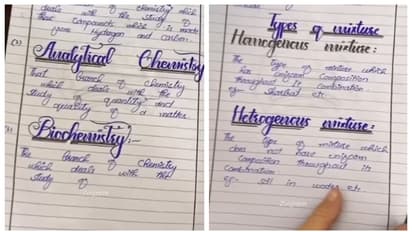 deals with the study of
those compounds which is made
from Hydrogen and carbon.
Analytical Chemistry
That branch of chemistry
which deals with the
study of quality and
quantity of a matter
Biochemistry:-
The branch of chemistry
which deals with the
study of
Types of mixture
Homogeneous mixture:
The type of mixture which
has uniform composition
throughout its combination
eg:- sharbat etc
Hetrogeneous mixture:
The type of mixture which
does not have uniform
composition throughout its
combination
eg:- soil in water etc